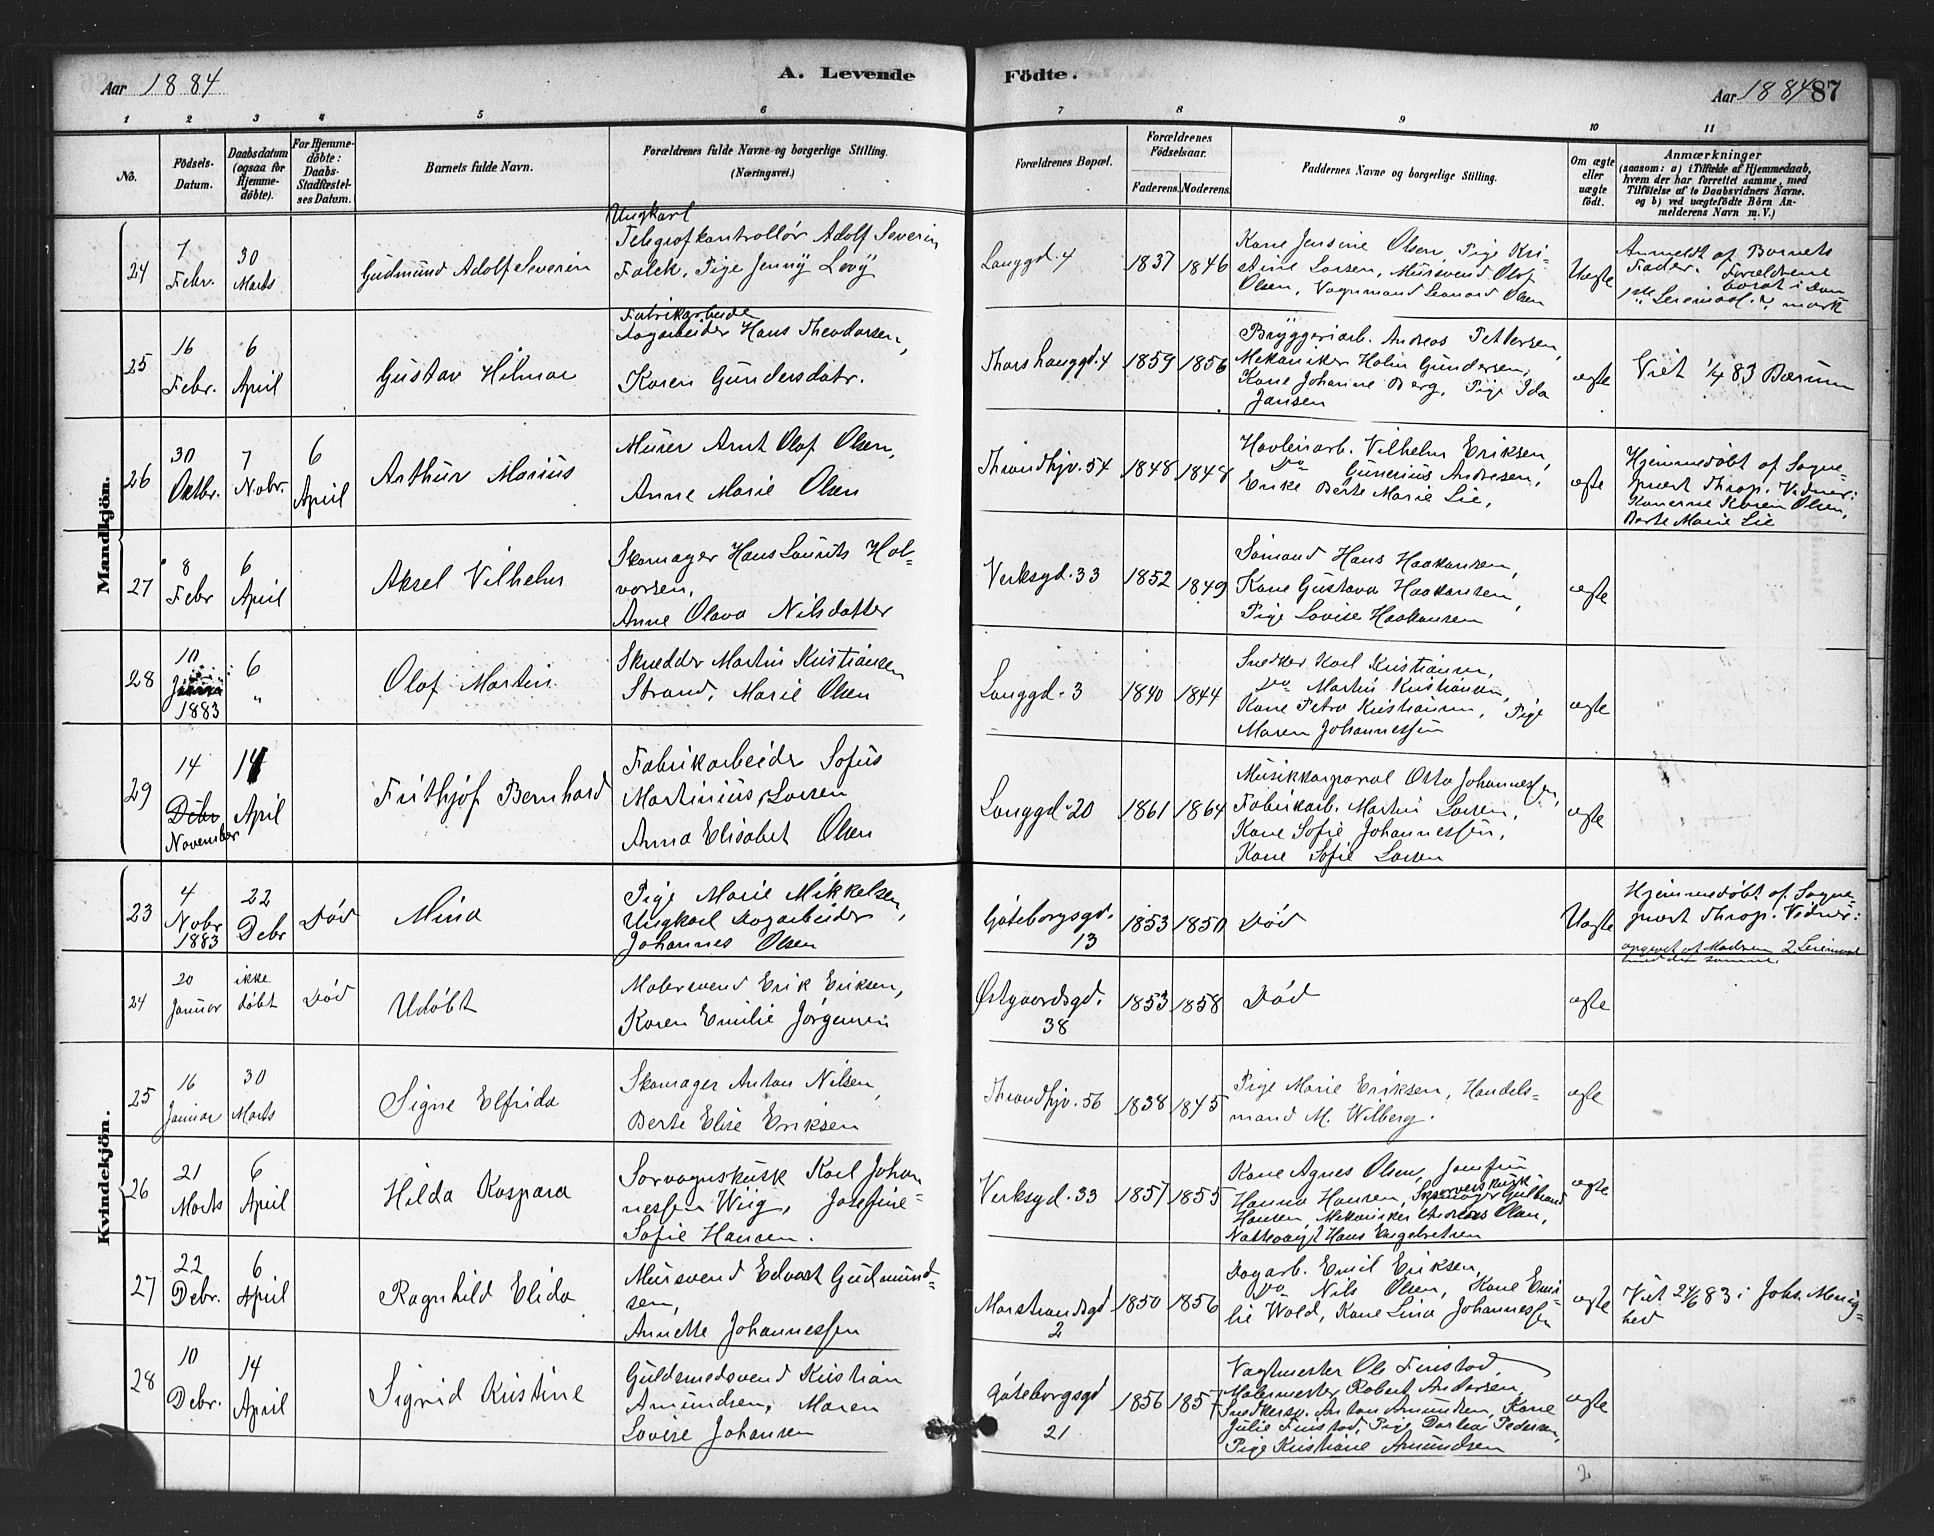 Aar 1884
A. Levende
Födte.
Aar 1884 87
1 2 3 4 5 6 7 8 9 10 11
No.
Födsels-Datum.
Daabsdatum (ogsaa for Hjemmedöbte).
For Hjemmedöbte: Daabs-Stadfæstelses Datum.
Barnets fulde Navn.
Forældrenes fulde Navne og borgerlige Stilling. (Næringsvei.)
Forældrenes Bopæl.
Forældrenes Födselsaar.
Faderens. Moderens.
Faddernes Navne og borgerlige Stilling.
Om ægte eller uægte födt.
Anmærkninger
(saasom: a) i Tilfælde af Hjemmedaab,
hvem der har forrettet samme, med
Tilföielse af to Daabsvidners Navne.
og b) ved uægtefödte Börn An-
melderens Navn m. V.)
Mandkjön.
24
7 Febr.
30 Marts
Gudmund Adolf Severin
Ungkarl
Telegrafkontrollør Adolf Severin
Falck, Pige Jenny Levy
Langgd. 4
1837 1846
Kone Jensine Olsen, Pige Kri-
stine Larsen, Mursvend Olaf
Olsen, Vognmand Leonard Olsen
Uægte
Anmeldt af Barnets
Fader. Forældrene
borat i Dan
1ste Leiermaal. mark
25
16 Febr.
6 April
Gustav Hilmar
Fabrikarbeider
Dagarbeider Hans Theodorsen,
Karen Gundersdatr.
Thorshauggd. 4
1859 1856
Bryggeriarb. Andreas Pettersen,
Mekaniker Halin Gundersen,
Kone Johanne Berg, Pige Ida
Jansen
ægte
Viet 1/4 83 Bærum
26
30 Oktbr.
7 Nobr.
6 April
Arthur Marius
Murer Arnt Olaf Olsen,
Anne Marie Olsen
Throndhjv. 54
1848 1848
Høvleriarb. Vilhelm Eriksen,
Do Gunerius Andresen,
Enke Berte Marie Lie,
ægte
Hjemmedøbt af Sogne-
præst Throp. Vidner:
Konerne Karen Olsen,
Berte Marie Lie
27
8 Febr
6 April
Aksel Vilhelm
Skomager Hans Laurits Hal-
vorsen,
Anne Olava Nilsdatter
Verksgd. 33
1852 1849
Sømand Hans Haakansen,
Kone Gustava Haakansen,
Pige Lovise Haakansen
ægte
28
10 1883
6 "
Olaf Martin
Skrædder Martin Kristiansen
Strand, Marie Olsen
Langgd. 3
1840 1844
Snedker Karl Kristiansen,
Do Martin Kristiansen,
Kone Petra Kristiansen, Pige
Maren Johannessen
ægte
29
14 Debr November
14 April
Frithjof Bernhard
Fabrikarbeider Sofus
Martinius Larsen
Anna Elisabet Olsen
Langgd. 20
1861 1864
Musikkorporal Otto Johannessen,
Fabrikarb. Martin Larsen,
Kone Sofie Johannessen,
Kone Sofie Larsen
ægte
Kvindekjön.
23
4 Nobr 1883
22 Debr
Död
Mina
Pige Marie Mikkelsen,
Ungkarl Dagarbeider
Johannes Olsen
Göteborgsgd. 13
1853 1850
Död
Uægte
Hjemmedøbt af Sogne-
præst Throp. Vidner:
opgivet af Moderen 2 Leiermaal
med den samme.
24
20 Januar
ikke døbt
Död
Udöbt
Malersvend Erik Eriksen,
Karen Emilie Jørgensen
Østgaardsgd. 38
1853 1858
Död
ægte
25
16 Januar
30 Marts
Signe Elfrida
Skomager Anton Nilsen,
Berte Elise Eriksen
Throndhjv. 56
1838 1845
Pige Marie Eriksen, Handels-
mand M. Wilberg.
ægte
26
21 Marts
6 April
Hilda Kaspara
Sporvognskusk Karl Johan
nessen Wiig, Josefine
Sofie Hansen.
Verksgd. 33
1857 1855
Kone Agnes Olsen, Jomfru
Hanna Hansen, Sporveiskusk Gulbrand
Hansen, Mekaniker Andreas Olsen,
Nattevagt Hans Engebretsen
ægte
27
22 Debr.
6 April
Ragnhild Elida
Mursvend Edvart Gudmund-
sen,
Annette Johannessen
Marstrandsgd 2
1850 1856
Dagarb. Emil Eriksen,
Do Nils Olsen, Kone Emi-
lie Wold, Kone Lina Johannessen
ægte
Viet 24/6 83 i Johs. Menig-
hed
28
10 Debr.
14 April
Sigrid Kristine
Guldsmedsvend Kristian
Amundsen, Maren
Lovise Johansen
Göteborgsgd 21
1856 1857
Vagtmester Ole Finstad,
Malermester Robert Andersen,
Snedkersv. Anton Amundsen, Kone
Julie Finstad, Pige Dorthea Pedersen,
Pige Kristiane Amundsen
ægte
2